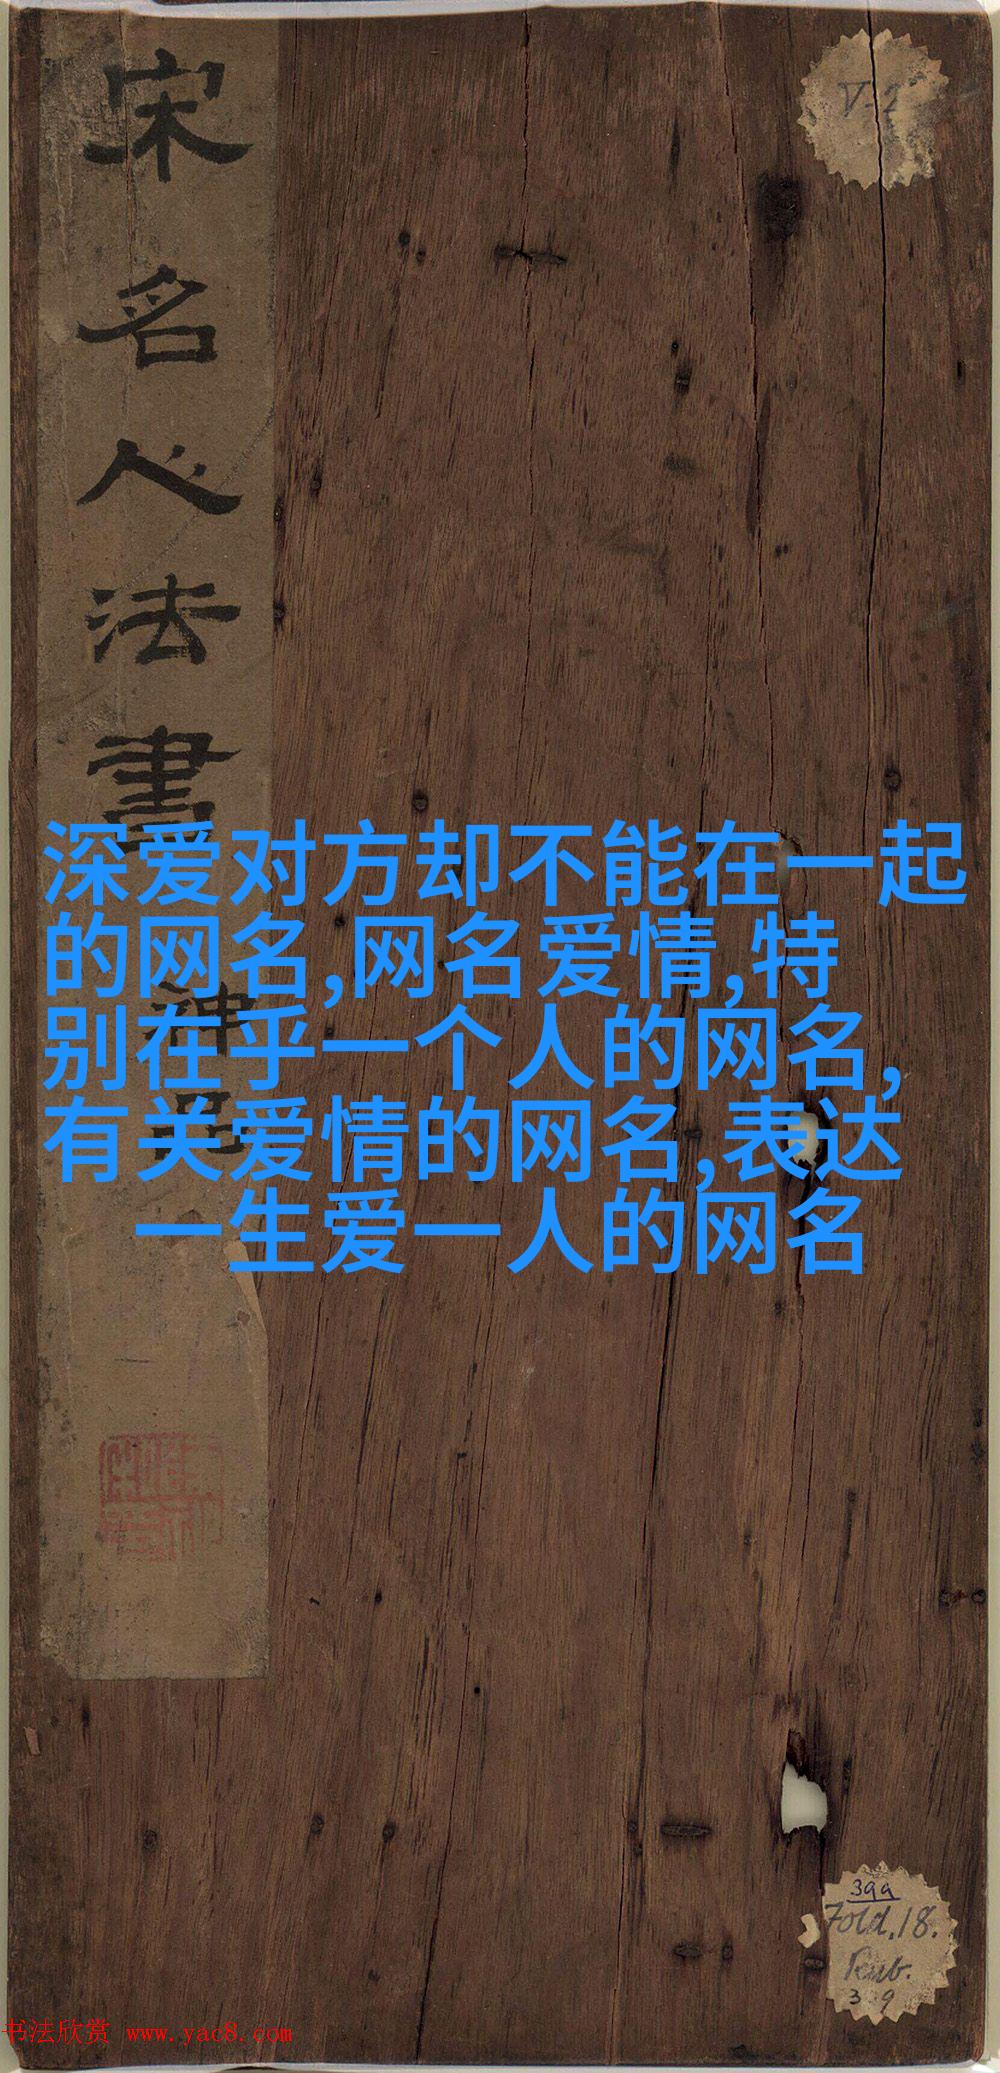 宋名人法書
神品
V-2
深爱对方却不能在一起
的网名,网名爱情,特
别在乎一个人的网名,
有关爱情的网名,表达
一生爱一人的网名
399
Fold.18.
书法欣赏 www.yac8.com